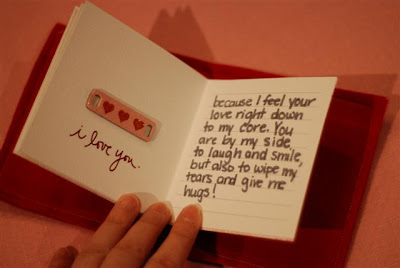 i love you.
because I feel your
love right down
to my core. You
are by my side,
to laugh and smile,
but also to wipe my
tears and give me
hugs!